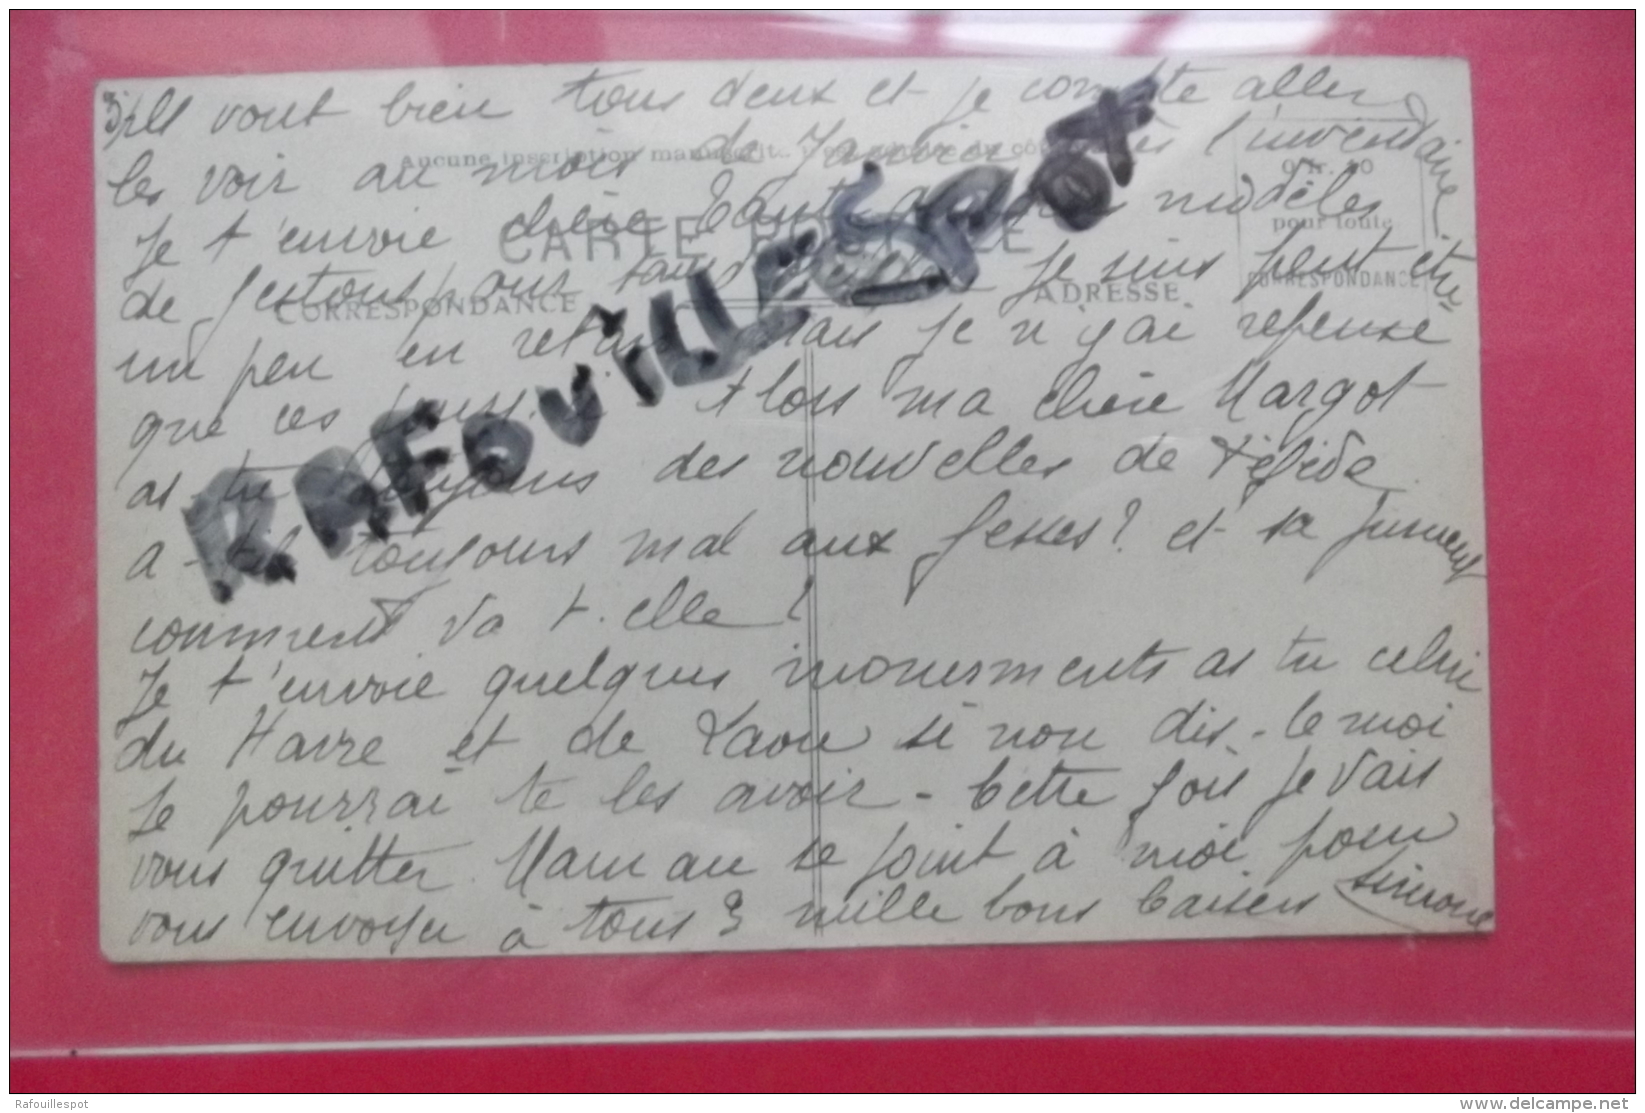 3) Ils vont bien tous deux et je compte aller
les voir au mois de Janvier après l'inventaire
Aucune inscription manuscrit
0 fr. 10
pour toute
CORRESPONDANCE
Je t'envoie chère modèles
CARTE POSTALE
de festons pour je suis peut être
CORRESPONDANCE
ADRESSE
un peu en retard mais je n'y ai repensé
que ces jours Alors ma chère Margot
as-tu toujours des nouvelles de
a-t-il toujours mal aux fesses? et sa jument
comment va t-elle?
Je t'envoie quelques monuments as tu celui
du Havre et de Laon si non dis-le moi
je pourrai te les avoir - Cette fois je vais
vous quitter. Maman se joint à moi pour
vous envoyer à tous 3 mille bons baisers Simone
RAFOUILLESPOT
Rafouillespot
delcampe.net